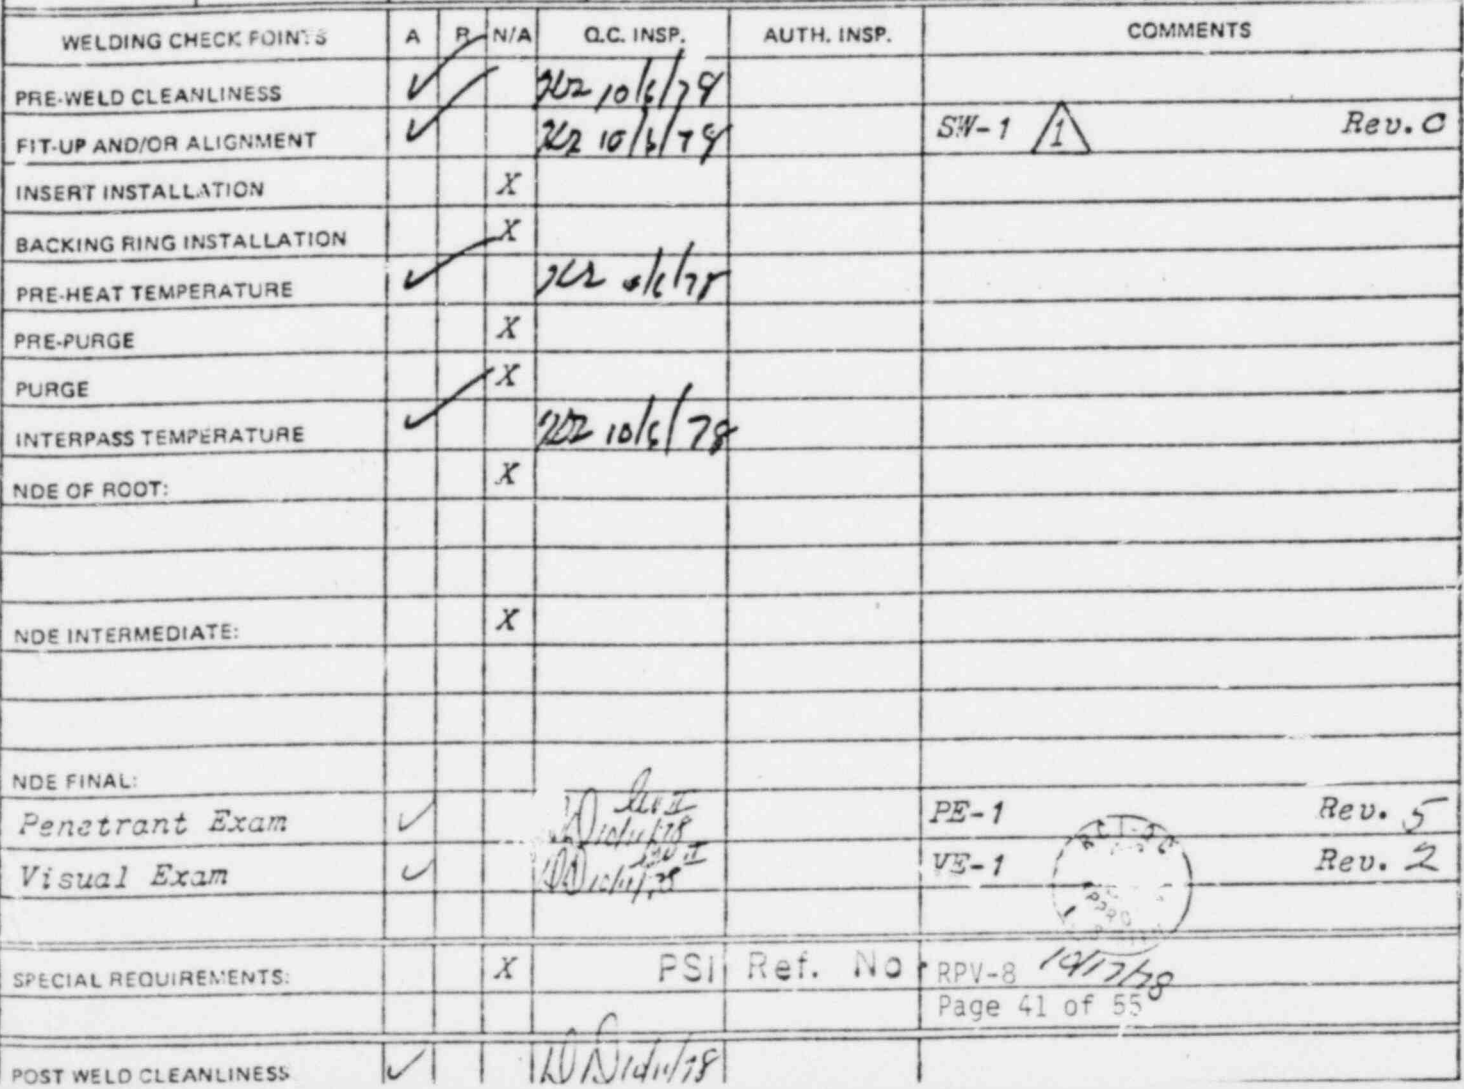 WELDING CHECK POINTS A R N/A Q.C. INSP. AUTH. INSP. COMMENTS
PRE-WELD CLEANLINESS ✓ 10/6/78
FIT-UP AND/OR ALIGNMENT ✓ 10/6/78 SW-1 1 Rev. 0
INSERT INSTALLATION X
BACKING RING INSTALLATION X
PRE-HEAT TEMPERATURE ✓ /6/78
PRE-PURGE X
PURGE X
INTERPASS TEMPERATURE ✓ 10/6/78
NDE OF ROOT: X
NDE INTERMEDIATE: X
NDE FINAL:
Penetrant Exam ✓ Lev II 10/11/78 PE-1 Rev. 5
Visual Exam ✓ Lev II 10/11/78 VE-1 Rev. 2
SPECIAL REQUIREMENTS: X PSI Ref. No. RPV-8 10/17/78
Page 41 of 55
POST WELD CLEANLINESS ✓ 10/11/78